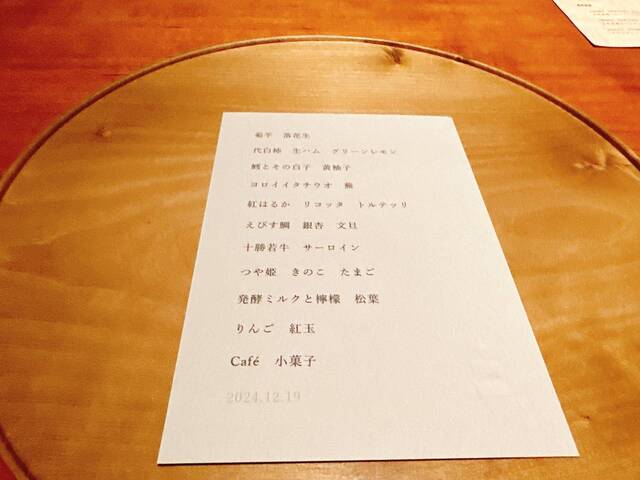 菊芋 落花生
代白柿 生ハム グリーンレモン
鱈とその白子 黄柚子
ヨロイイタチウオ 蕪
紅はるか リコッタ トルテッリ
えびす鯛 銀杏 文旦
十勝若牛 サーロイン
つや姫 きのこ たまご
発酵ミルクと檸檬 松葉
りんご 紅玉
Café 小菓子
2024.12.19